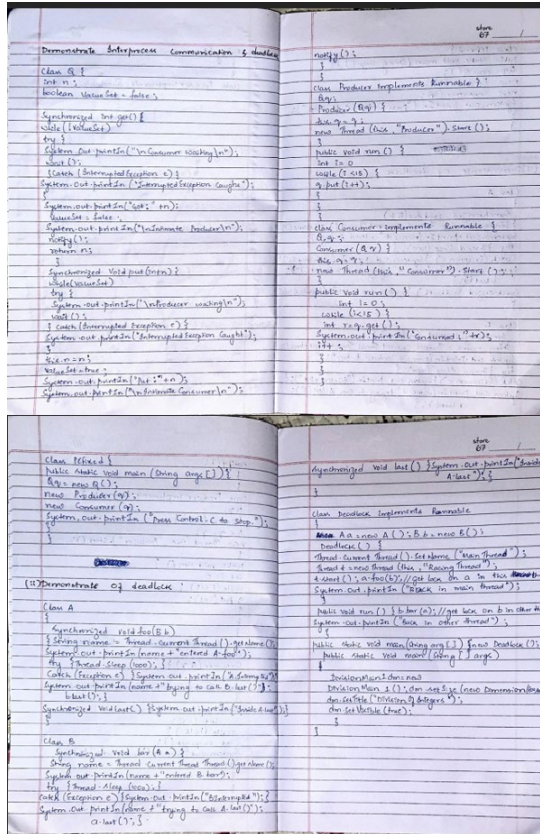 Demonstrate Interprocess Communication & deadlock
Class Q {
int n;
boolean ValueSet = false;
Synchronized int get() {
while(!valueSet)
try {
System.Out.println("\nConsumer waiting\n");
wait();
} Catch (InterruptedException e) {
System.out.println("InterruptedException Caught");
}
System.out.println("Got:" +n);
valueSet = false;
System.out.println("\nIntimate Producer\n");
notify();
return n;
}
Synchronized Void put(int n) {
while(valueSet)
try {
System.out.println("\nProducer waiting\n");
wait();
} catch(Interrupted Exception e) {
System.out.println("Interrupted Exception Caught");
}
this.n=n;
valueSet=true;
System.out.println("Put:"+n);
System.out.println("\nIntimate Consumer\n");
store
67
notify();
}
}
class Producer implements Runnable {
Q q;
Producer(Q q) {
this.q = q;
new Thread(this, "Producer").Start();
}
public void run() {
int i=0
while (i<15) {
q.put(i++);
}
}
}
class Consumer implements Runnable {
Q q;
Consumer(Q q) {
this.q = q;
new Thread(this, "Consumer").Start();
}
public void run() {
int i=0;
while (i<15) {
int r=q.get();
System.out.println("Consumed:"+r);
i++;
}
}
}
Class PCfixed {
public static void main(String args[]) {
Q q = new Q();
new Producer(q);
new Consumer(q);
System.out.println("Press Control-C to Stop.");
}
}
(II) Demonstrate of deadlock
Class A
{
Synchronized void foo(B b)
{ String name = Thread.Current Thread().getName();
System.out.println(name + "entered A.foo");
try {Thread.Sleep(1000);}
Catch (Exception e) {System.out.println("A.Interrupted");}
System.out.println(name + "trying to call B.last()");
b.last(); }
Synchronized Void last() {System.out.println("Inside A.last");}
}
Class B
Synchronized void bar(A a) {
String name = Thread.Current Thread().getName();
System.out.println(name + "entered B.bar");
try {Thread.sleep(1000);}
catch (Exception e) {System.out.println("B Interrupted");}
System.out.println(name + "trying to call A.last()");
a.last(); }
store
67
Synchronized Void last() {System.out.println("Inside
A.last"); }
}
Class Deadlock Implements Runnable
A a=new A(); B b=new B();
Deadlock() {
Thread.Current Thread().Set Name("Main Thread");
Thread t=new Thread(this, "Racing Thread");
t.start(); a.foo(b); //get lock on a in this
System.out.println("Back in main thread");
}
public void run() { b.bar(a); //get lock on b in other th
System.out.println("Back in other thread");
}
public static void main(String arg[]) {new Deadlock();
public static void main(String[] args)
{
DivisionMain1 dm=new
Division Main 1(); dm.setSize(new Dimension
dm.setTitle("Division of Integers");
dm.setVisible(true);
}
}